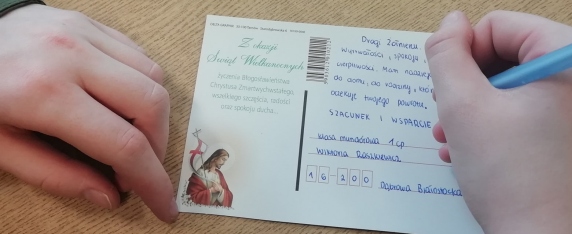 Z okazji
Świąt Wielkanocnych
życzenia Błogosławieństwa
Chrystusa Zmartwychwstałego,
wszelkiego szczęścia, radości
oraz spokoju ducha...
Drogi Żołnierzu,
wytrwałości, spokoju,
cierpliwości. Mam nadzieję
do domu, do rodziny, któ
oczekuje twojego powrotu.
SZACUNEK I WSPARCIE
klasa mundurowa 1 cp
Wiktoria
16-200
Dąbrowa Białostocka